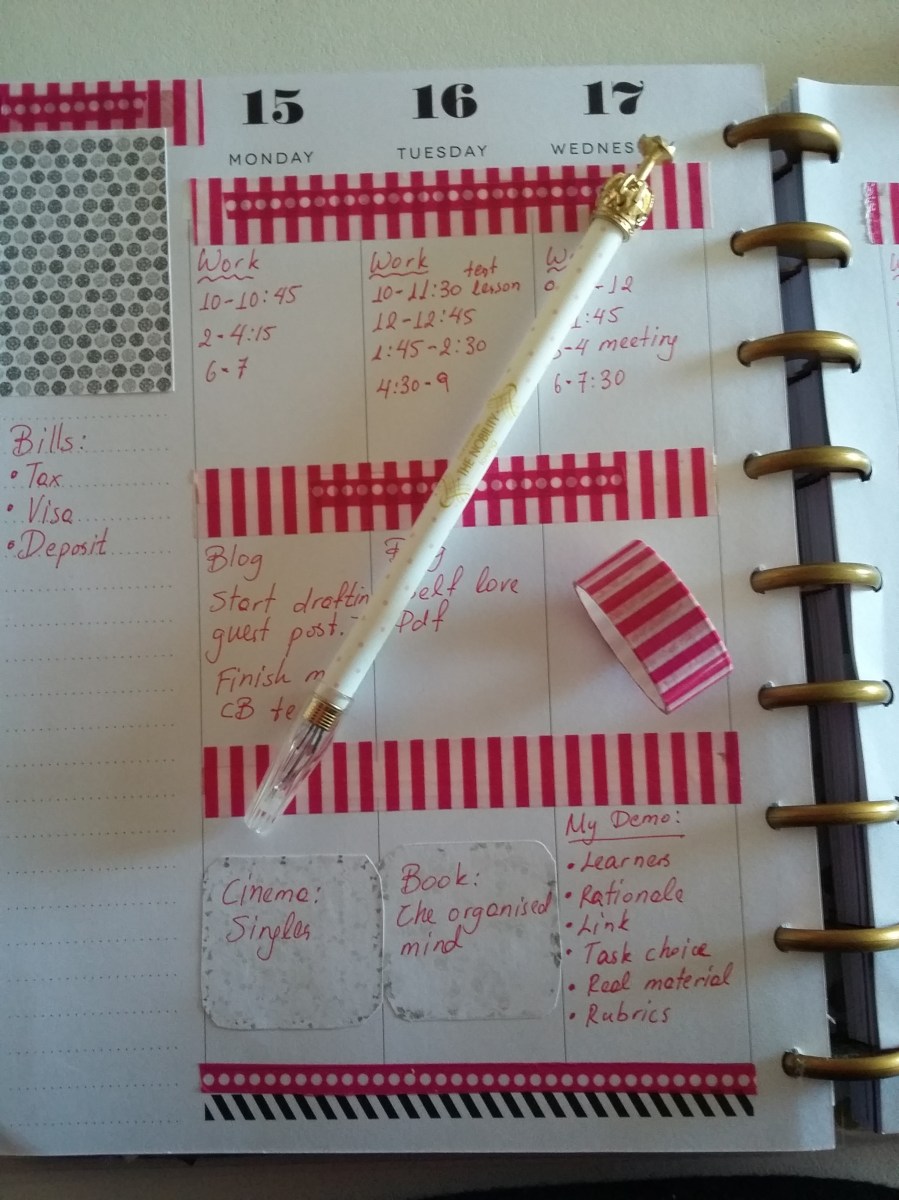 15
MONDAY
16
TUESDAY
17
Work
10-10:45
2-4:15
6-7
Work
10-11:30 test lesson
12-12:45
1:45-2:30
4:30-9
-12
:45
-4 meeting
6-7:30
Bills:
• Tax
• Visa
• Deposit
Blog
Start
guest post.
Finish
CB
self love
Pdf
THE NOBILITY
Cinema:
Singles
Book:
the organised
mind
My Demo:
• Learners
• Rationale
• Link
• Task choice
• Real material
• Rubrics